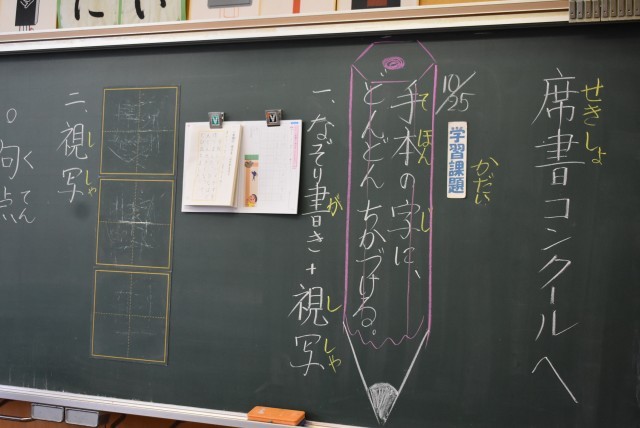 席書コンクールへ
せきしょ
10/25
学習課題
かだい
手本の字に、
てほん じ
どんどんちかづける。
一、なぞり書き+視写
が ししゃ
二、視写
ししゃ
。句点
くてん